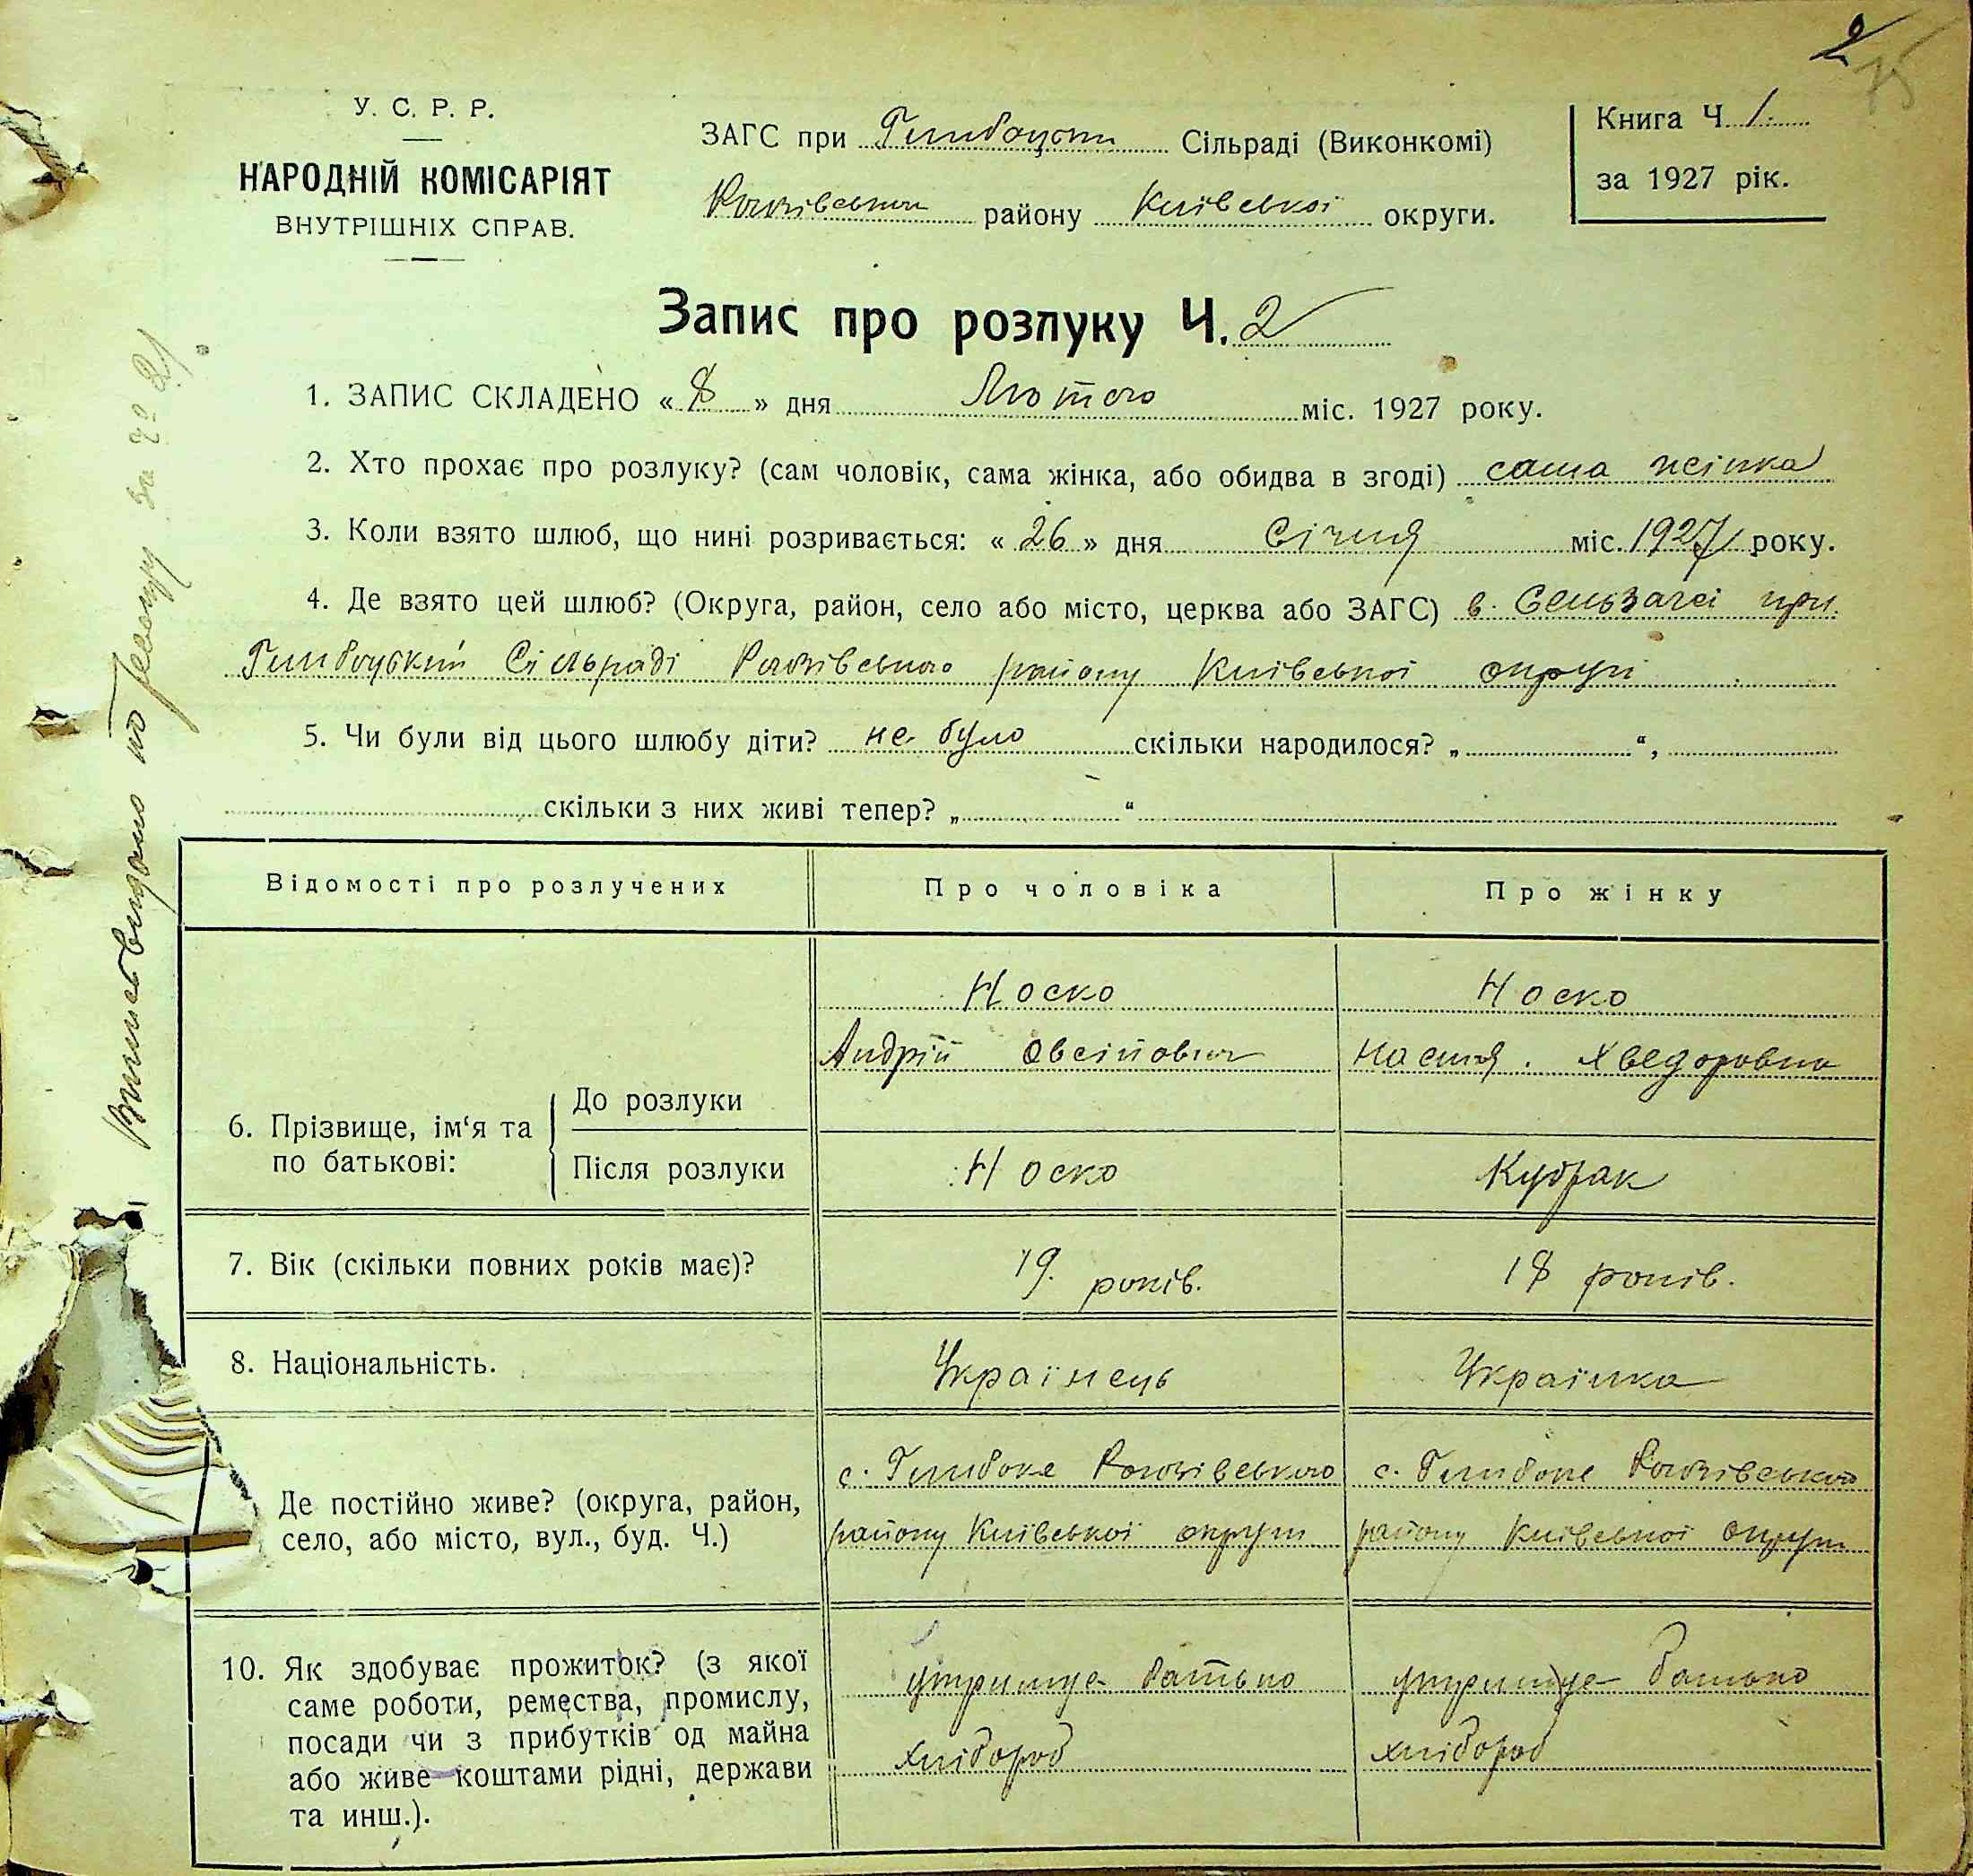 2
75
У. С. Р. Р.
НАРОДНІЙ КОМІСАРІЯТ
ВНУТРІШНІХ СПРАВ.
ЗАГС при Глибоцькій Сільраді (Виконкомі)
Рогозівського району Київської округи.
Книга Ч. 1.
за 1927 рік.
Запис про розлуку Ч. 2
1. ЗАПИС СКЛАДЕНО « 8 » дня Лютого міс. 1927 року.
2. Хто прохає про розлуку? (сам чоловік, сама жінка, або обидва в згоді) сама жінка
3. Коли взято шлюб, що нині розривається: « 26 » дня Січня міс. 1927 року.
4. Де взято цей шлюб? (Округа, район, село або місто, церква або ЗАГС) в Сельзагсі при
Глибоцький Сільраді району Київської округи
5. Чи були від цього шлюбу діти? не було скільки народилося? „ “,
скільки з них живі тепер? „ “
Відомості про розлучених
Про чоловіка
Про жінку
6. Прізвище, ім‘я та
по батькові:
До розлуки
Носко
Андрій Овсійович
Носко
Настя. Хведоровна
Після розлуки
Носко
Кудрак
7. Вік (скільки повних років має)?
19. років.
18 років.
8. Національність.
Українець
Українка
Де постійно живе? (округа, район,
село, або місто, вул., буд. Ч.)
с. Глибоке
району Київської округи
с. Глибоке
району Київської округи
10. Як здобуває прожиток? (з якої
саме роботи, ремества, промислу,
посади чи з прибутків од майна
або живе коштами рідні, держави
та инш.).
утримує батько
хлібороб
утримує батько
хлібороб
Виписъ видано по реестру за № 21